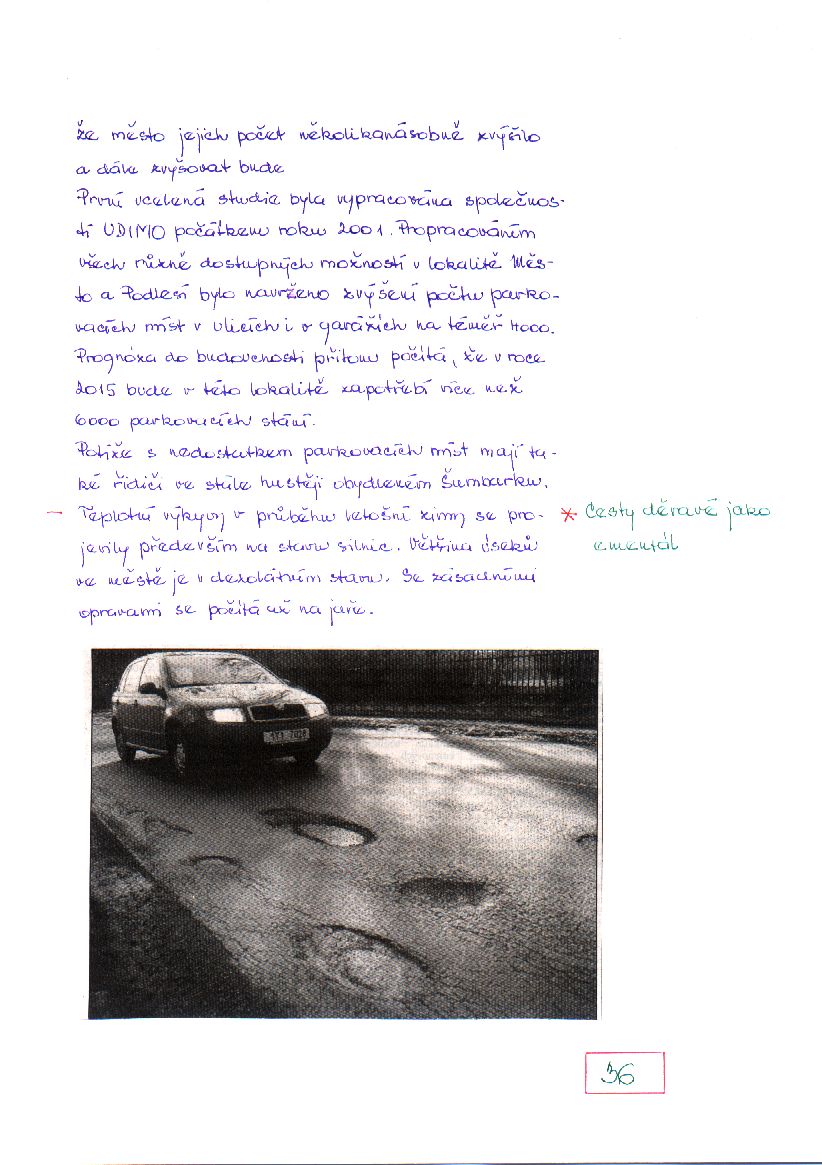 že město jejich počet několikanásobně zvýšilo
a dále zvyšovat bude
První ucelená studie byla vypracována společnos-
tí UDIMO počátkem roku 2001. Propracováním
všech různě dostupných možností v lokalitě Měs-
to a Podlesí bylo navrženo zvýšení počtu parko-
vacích míst v ulicích i v garážích na téměř 4000.
Prognóza do budoucnosti přitom počítá, že v roce
2015 bude v této lokalitě zapotřebí více než
6000 parkovacích stání.
Potíže s nedostatkem parkovacích míst mají ta-
ké řidiči ve stále hustěji obydleném Šumbarku.
– Teplotní výkyvy v průběhu letošní zimy se pro- * Cesty děravé jako
jevily především na stavu silnic. Většina úseků ementál
ve městě je v dezolátním stavu. Se zásadními
opravami se počítá už na jaře.
1T1 7028
36